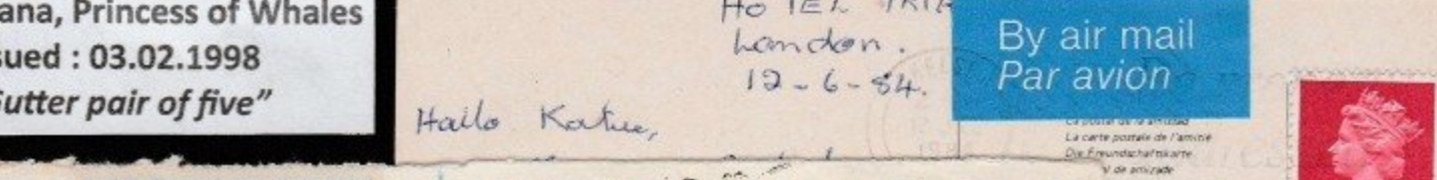 ana, Princess of Whales
sued : 03.02.1998
utter pair of five”
HOTEL
London.
12-6-84.
Hallo Katie,
By air mail
Par avion
La carte postale de l'amitié
Die Freundschaftskarte
al de amizade